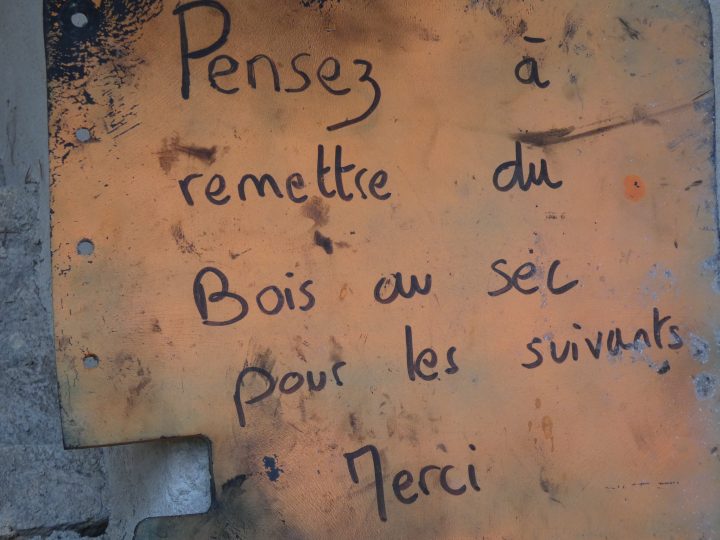 Pensez à
remettre du
Bois au sec
pour les suivants
Merci